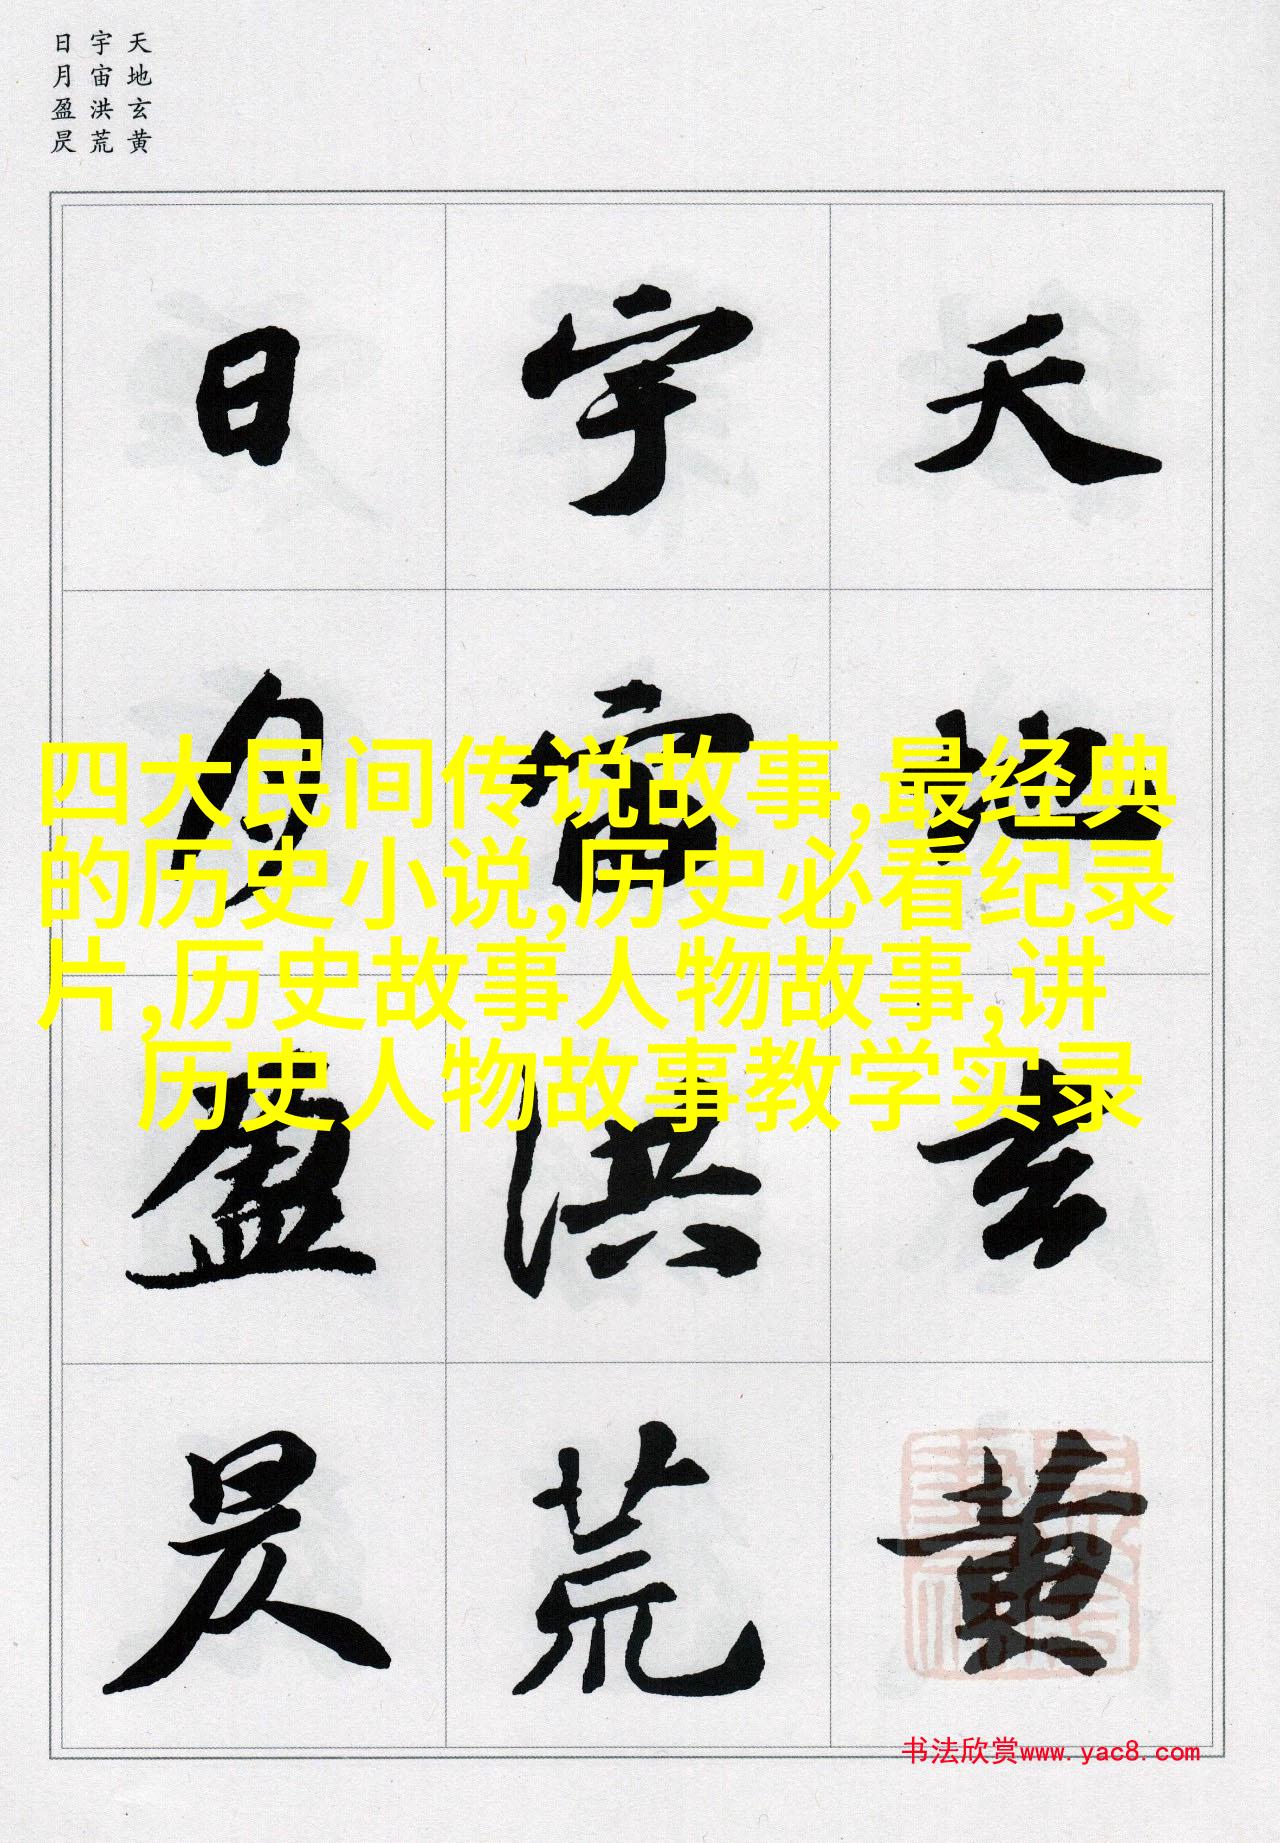 天地玄黄
宇宙洪荒
日月盈昃
天地玄黄
宇宙洪荒
日月盈昃
四大民间传说故事,最经典
的历史小说,历史必看纪录
片,历史故事人物故事,讲
历史人物故事教学实录
书法欣赏www.yac8.com